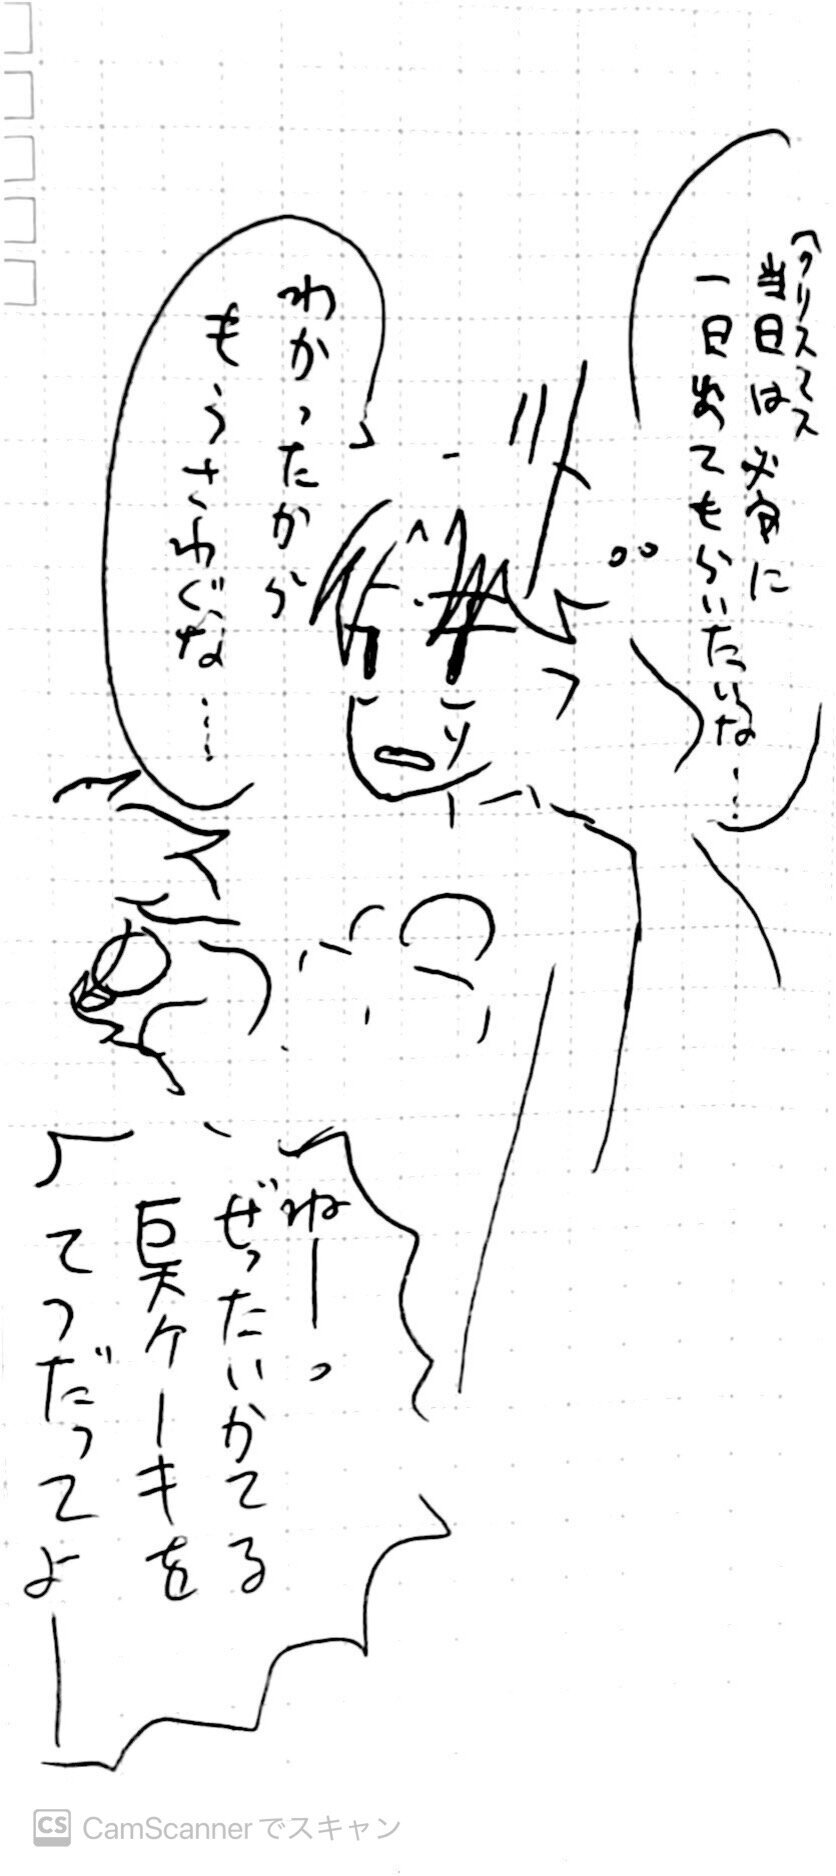 (クリスマス
当日は必ずに
一日あてもらいたいな…
わかったから
もうさわぐな……
ねーっ
ぜったいかてる
巨大ケーキを
てつだってよー
CS CamScannerでスキャン